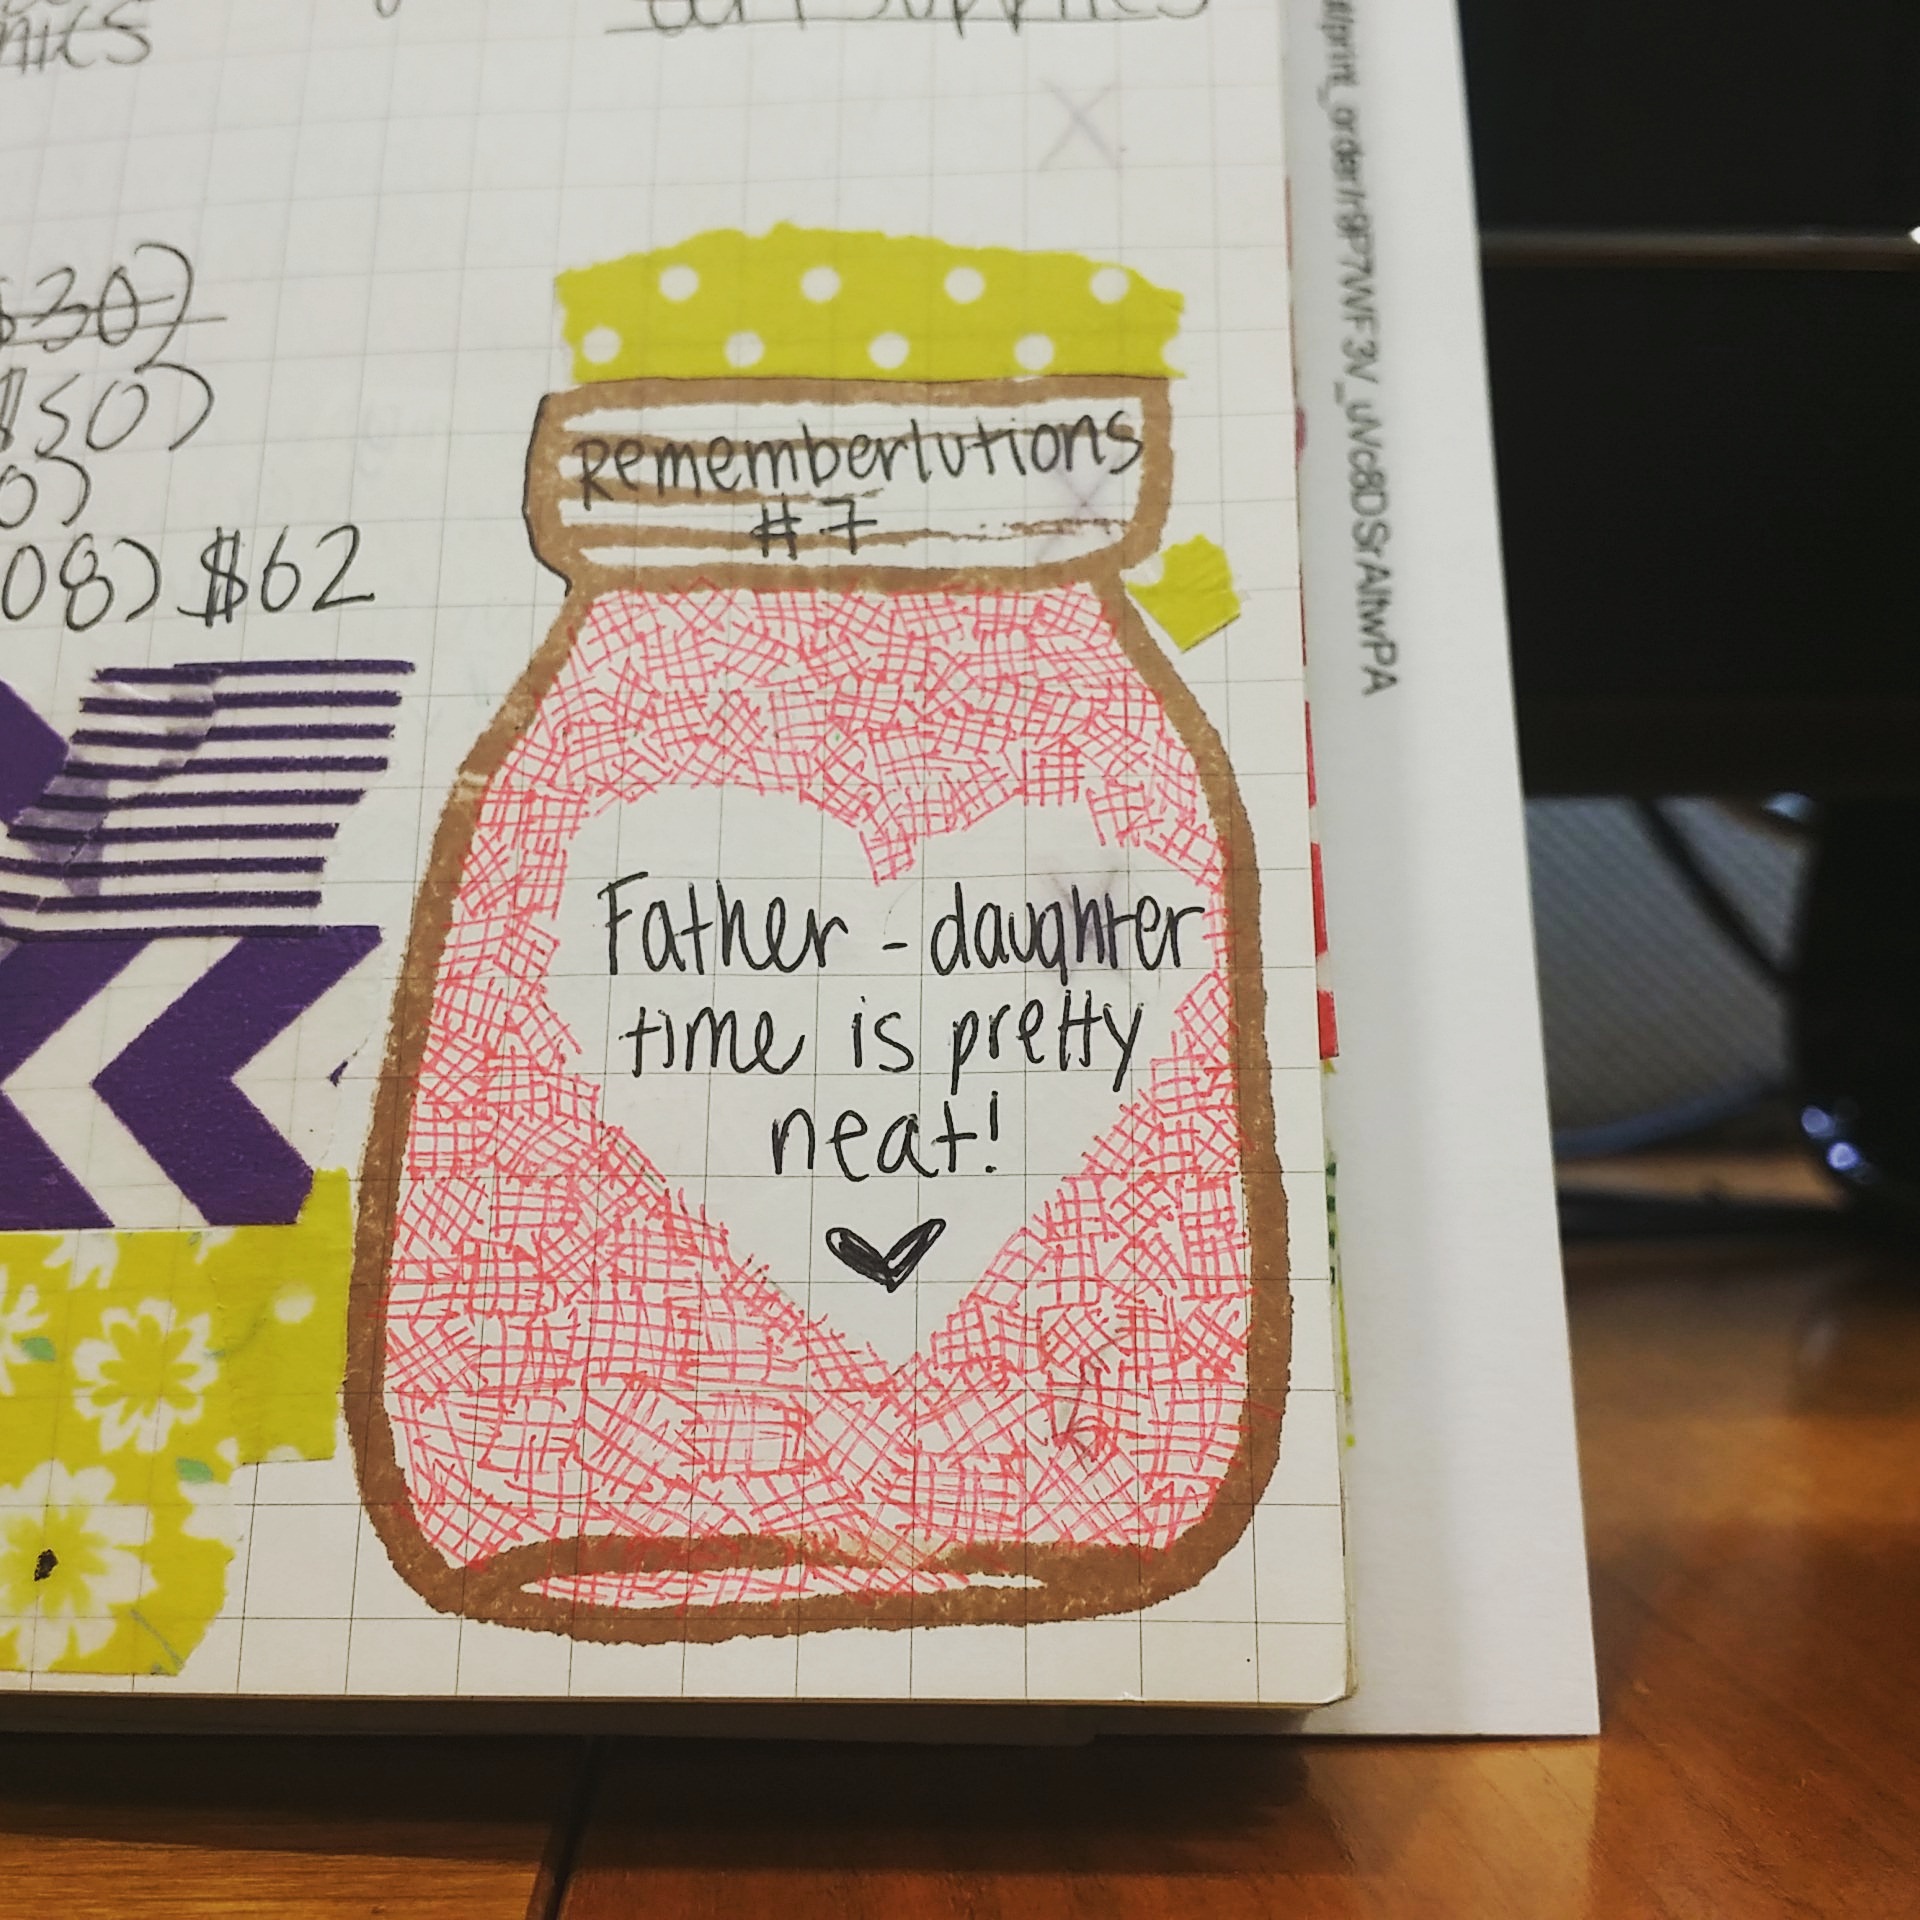 $30)
$50)
0)
08) $62
Rememberlutions
#7
Father - daughter
time is pretty
neat!
l/print_order/r9P7WF3V_uVc8DSrAltwPA